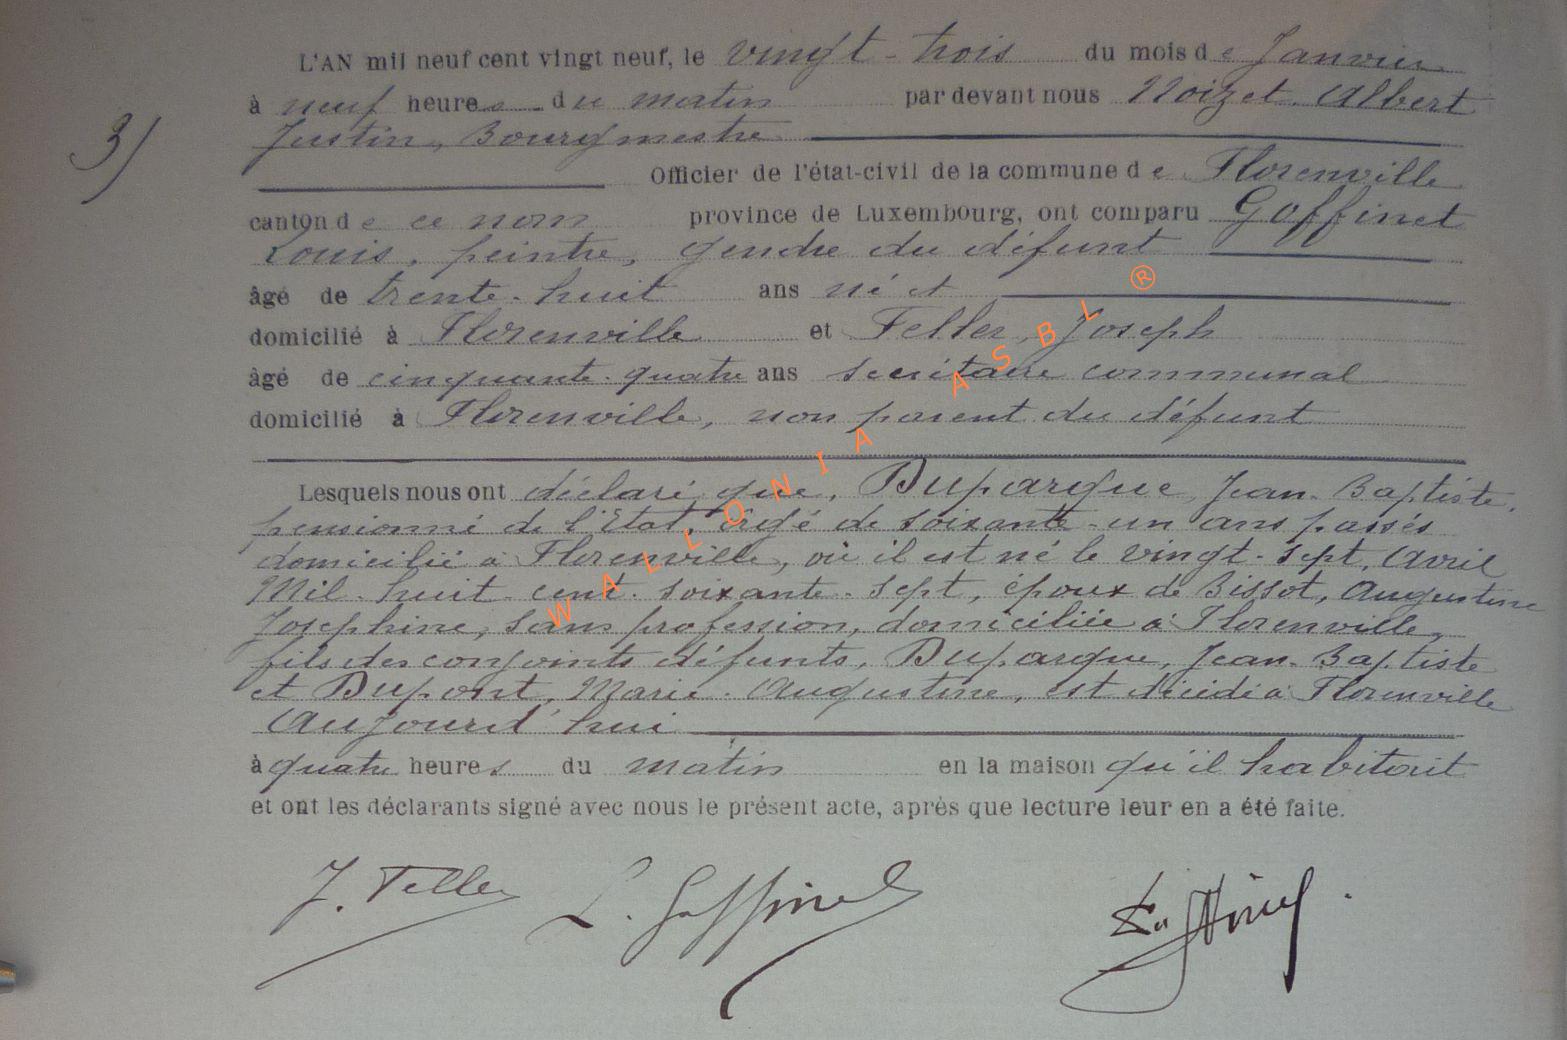 L'AN mil neuf cent vingt neuf, le vingt-trois du mois de Janvier
à neuf heures du matin par devant nous Noizet Albert
3/
Justin, Bourgmestre
Officier de l'état-civil de la commune de Florenville
canton de ce nom province de Luxembourg, ont comparu Goffinet
Louis, peintre, gendre du défunt
âgé de trente-huit ans né et
domicilié à Florenville et Feller, Joseph
âgé de cinquante-quatre ans secrétaire communal
domicilié à Florenville, non parent du défunt
Lesquels nous ont déclaré que, Duparque, Jean-Baptiste,
pensionné de l'Etat, âgé de soixante-un ans passés
domicilié à Florenville, où il est né le vingt-sept, Avril
Mil-huit-cent-soixante-sept, époux de Bissot, Augustine
Joséphine, sans profession, domiciliée à Florenville,
fils des conjoints défunts, Duparque, Jean-Baptiste
et Dupont, Marie-Augustine, est décédé à Florenville
Aujourd'hui
à quatre heures du matin en la maison qu'il habitait
et ont les déclarants signé avec nous le présent acte, après que lecture leur en a été faite.
J. Feller L. Goffinet
WALLONIA ASBL ®